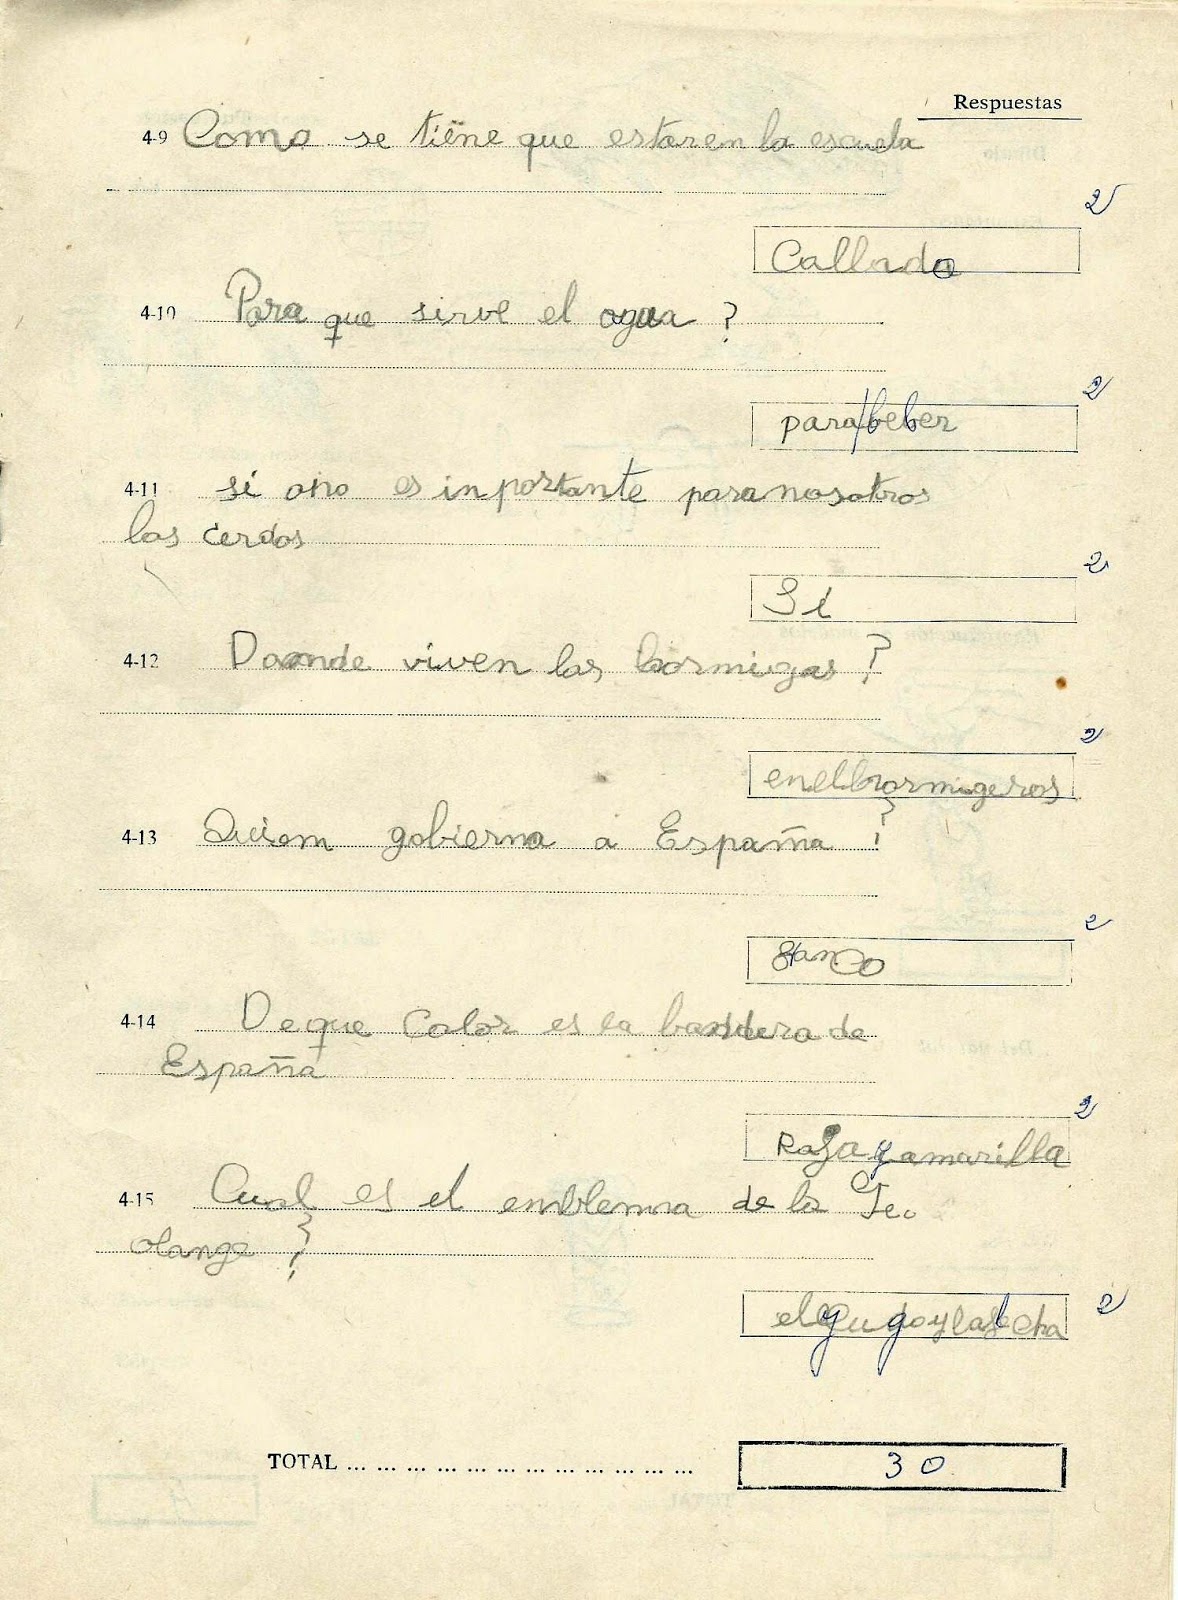 Respuestas
4-9 Como se tiene que estar en la escuela
2
Callado
4-10 Para que sirve el agua ?
2
para/beber
4-11 si ono es inportante para nosotros
los cerdos
2
Si
4-12 Donde viven las hormigas ?
2
en el hormigeros
4-13 Quiem gobierna a España ?
2
franco
4-14 De que Color es la bandera de
España
2
Roja y amarilla
4-15 Cual es el emblema de la Fe.
olange ?
2
el yugo y la flecha
TOTAL ... ... ... ... ... ... ... ... ... ... ... ... 30